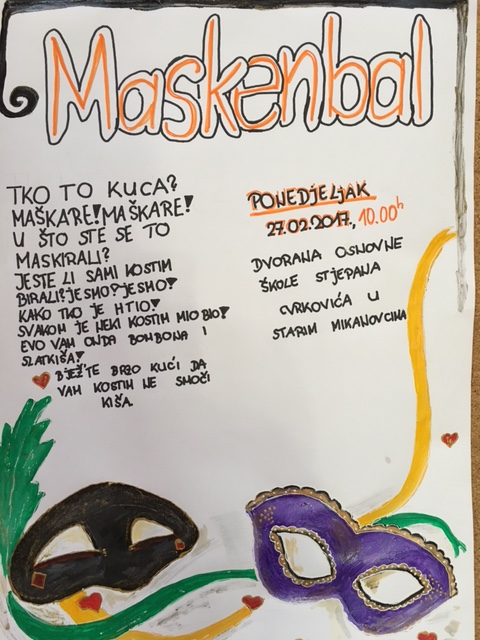 Maskenbal
TKO TO KUCA?
MAŠKARE! MAŠKARE!
U ŠTO STE SE TO
MASKIRALI?
JESTE LI SAMI KOSTIM
BIRALI? JESMO? JESMO!
KAKO TKO JE HTIO!
SVAKOM JE NEKI KOSTIM MIO BIO!
EVO VAM ONDA BOMBONA I
SLATKIŠA!
BJEŽ'TE BRZO KUĆI DA
VAM KOSTIM NE SMOČI
KIŠA.
PONEDJELJAK
27.02.2017., 10.00h
DVORANA OSNOVNE
ŠKOLE STJEPANA
CVRKOVIĆA U
STARIM MIKANOVCIMA